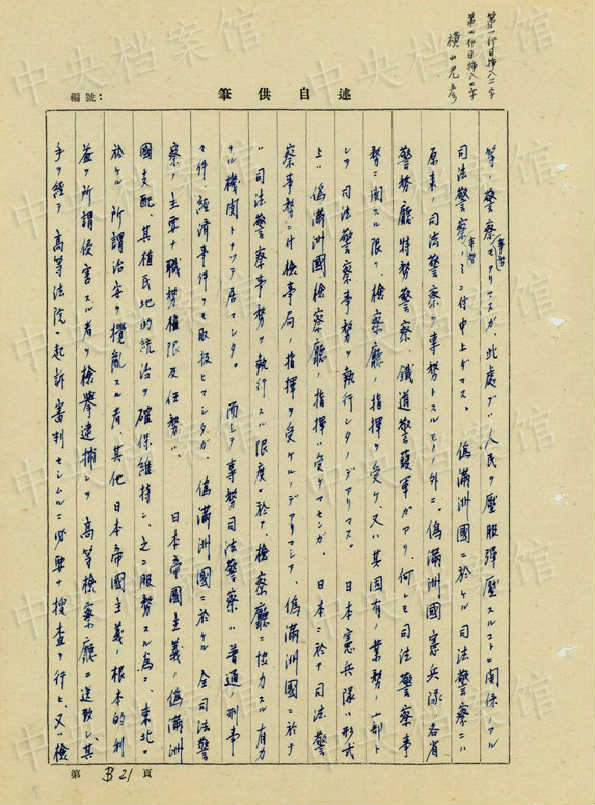 第一行目挿入二字
第四行目挿入四字
横山光彦
編號:
筆供自述
等ノ警察モアリマスガ、此處デハ人民ヲ壓服彈壓スルコトニ関係ノアル
司法警察事務ノミニ付申上ゲマス。偽滿洲國ニ於ケル司法警察ニハ
原来ノ司法警察ヲ専務トスルモノノ外ニ、偽滿洲國憲兵隊、各省
警務廳特務警察、鐵道警護軍ガアリ、何レモ司法警察事
務ニ関スル限リ、檢察廳ノ指揮ヲ受ケ、又ハ其固有ノ業務ノ一部ト
シテ司法警察事務ヲ執行シタノデアリマス。日本憲兵隊ハ形式
上ハ偽滿洲國檢察廳ノ指揮ハ受ケマセンガ、日本ニ於テ司法警
察事務ニ付檢事局ノ指揮ヲ受ケルノデアリマシテ、偽滿洲國ニ於テ
ハ司法警察事務ヲ執行スル限度ニ於テ、檢察廳ニ協力スル有力
ナル機関トナッテ居マシタ。而シテ専務司法警察ハ普通ノ刑事
事件、経済事件ヲモ取扱ヒマシタガ、偽滿洲國ニ於ケル全司法警
察ノ主要ナ職務権限及任務ハ、日本帝國主義ノ偽滿洲
國支配、其植民地的統治ヲ確保維持シ、之ニ服務スル為ニ、東北ニ
於ケル所謂治安ヲ攪亂スル者、其他日本帝國主義ノ根本的利
益ヲ所謂侵害スル者ヲ檢擧逮捕シテ高等檢察廳ニ送致シ、其
手ヲ経テ高等法院ニ起訴審判セシムルニ必要ナ捜査ヲ行ヒ、又ハ檢
第B21頁
中央档案馆